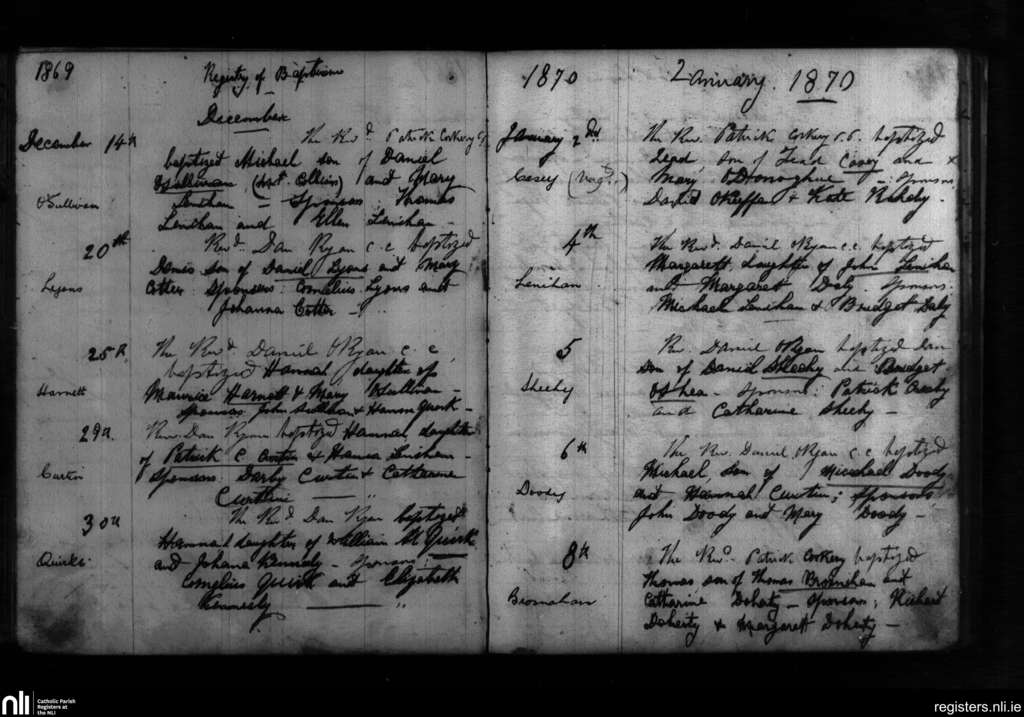 1869
Registry of Baptisms
December
December 14th
The Revd. Patrick Corkery
baptized Michael son of Daniel
OSullivan and Mary
O'Sullivan
Lenihan – Sponsors Thomas
Lenihan and Ellen Lenihan –
20th
Revd. Dan Ryan c c baptized
son of Daniel Lyons and Mary
Lyons
Cotter Sponsors: Cornelius Lyons and
Johanna Cotter –
25th
The Revd. Daniel ORyan c. c
baptized Hannah daughter of
Harnett
Maurice Harnett & Mary
Sponsors John Sullivan & Quirk –
29th
Rev. Dan Ryan baptized Hannah daughter
of Patrick C Curtin & Lenihan –
Curtin
Sponsors: Darby Curtin & Catherine
30th
The Revd Dan Ryan baptized
Hannah daughter of William Quirk
Quirke
and Johana Kennely – Sponsors:
Cornelius Quirk and Elizabeth
Kennely
1870
January. 1870
January 2nd
The Rev. Patrick Corkery baptized
son of Casey and
Casey
Mary ODonoghue – Sponsors
David OKeeffe & Kate
4th
The Revd. Daniel ORyan c.c. baptized
Margarett, daughter of John Lenihan
Lenihan
and Margaret Daly. Sponsors:
Michael Lenihan & Bridget Daly
5
Rev. Daniel ORyan baptized Dan
son of Daniel Sheehy and Bridget
Sheehy
OShea – Sponsors: Patrick
and Catharine Sheehy –
6th
The Rev. Daniel ORyan c c baptized
Michael, son of Michael Doody
Doody
and Hannah Curtin; Sponsors
John Doody and Mary Doody –
8th
The Revd. Patrick Corkery baptized
Thomas son of Thomas Brosnahan and
Brosnahan
Catharine Doherty – Sponsors; Richard
Doherty & Margarett Doherty –
nli
Catholic Parish
Registers at
the NLI
registers.nli.ie